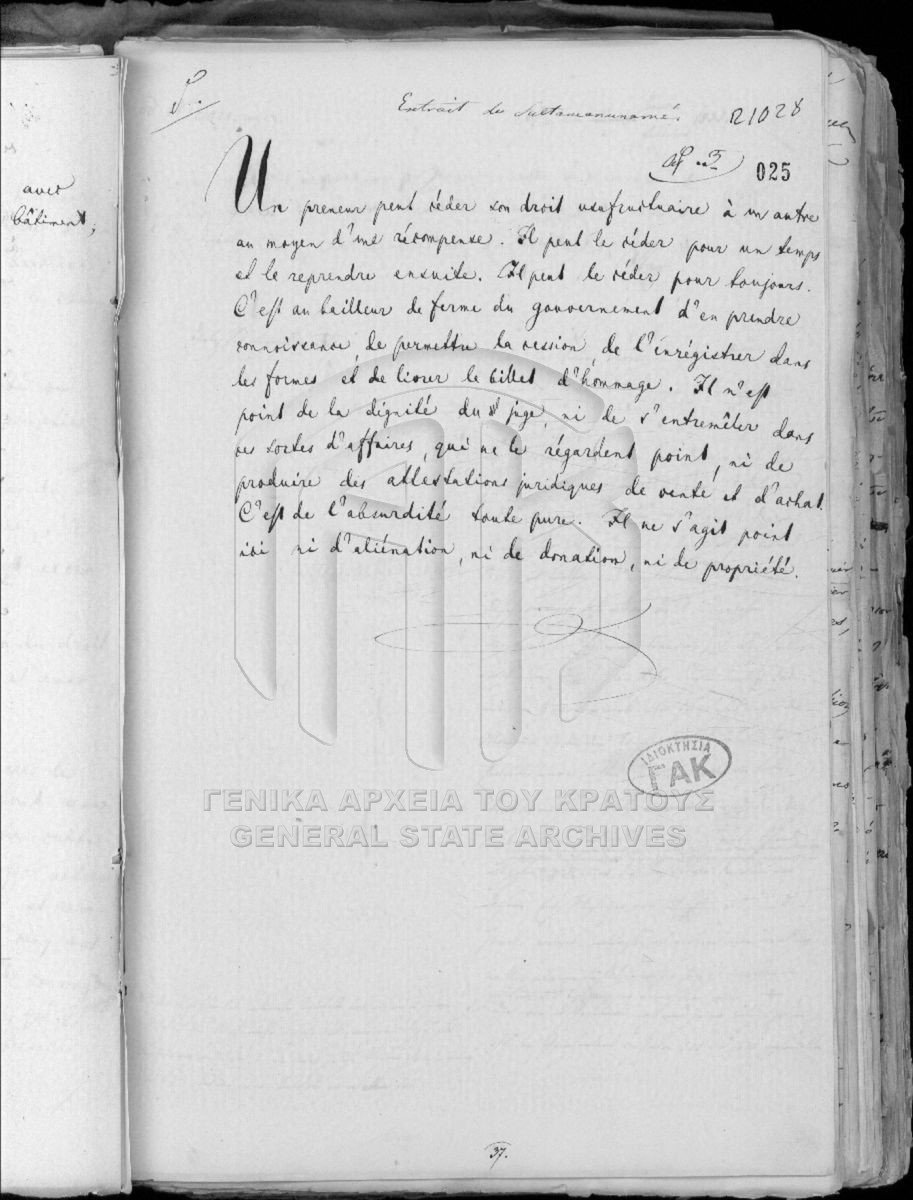 avec
bâtiment,
Extrait du Sultamanunamé.
21028
025
Un preneur peut céder son droit usufructuaire à un autre
au moyen d'une récompense. Il peut le céder pour un temps
et le reprendre ensuite. Il peut le céder pour toujours.
C'est au bailleur de ferme du gouvernement d'en prendre
connoissance, de permettre la cession, de l'énrégistrer dans
les formes et de livrer le billet d'hommage. Il n'est
point de la dignité du juge, ni de s'entremêler dans
ces sortes d'affaires, qui ne le régardent point, ni de
produire des attestations juridiques de vente et d'achat.
C'est de l'absurdité toute pure. Il ne s'agit point
ici ni d'aliénation, ni de donation, ni de propriété.
ΙΔΙΟΚΤΗΣΙΑ
ΓΑΚ
ΓΕΝΙΚΑ ΑΡΧΕΙΑ ΤΟΥ ΚΡΑΤΟΥΣ
GENERAL STATE ARCHIVES
37.